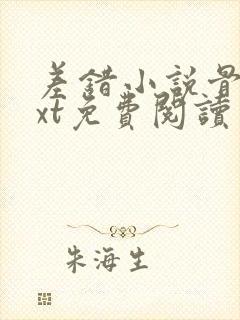 差錯小説骨
xt免費閱讀
朱海生